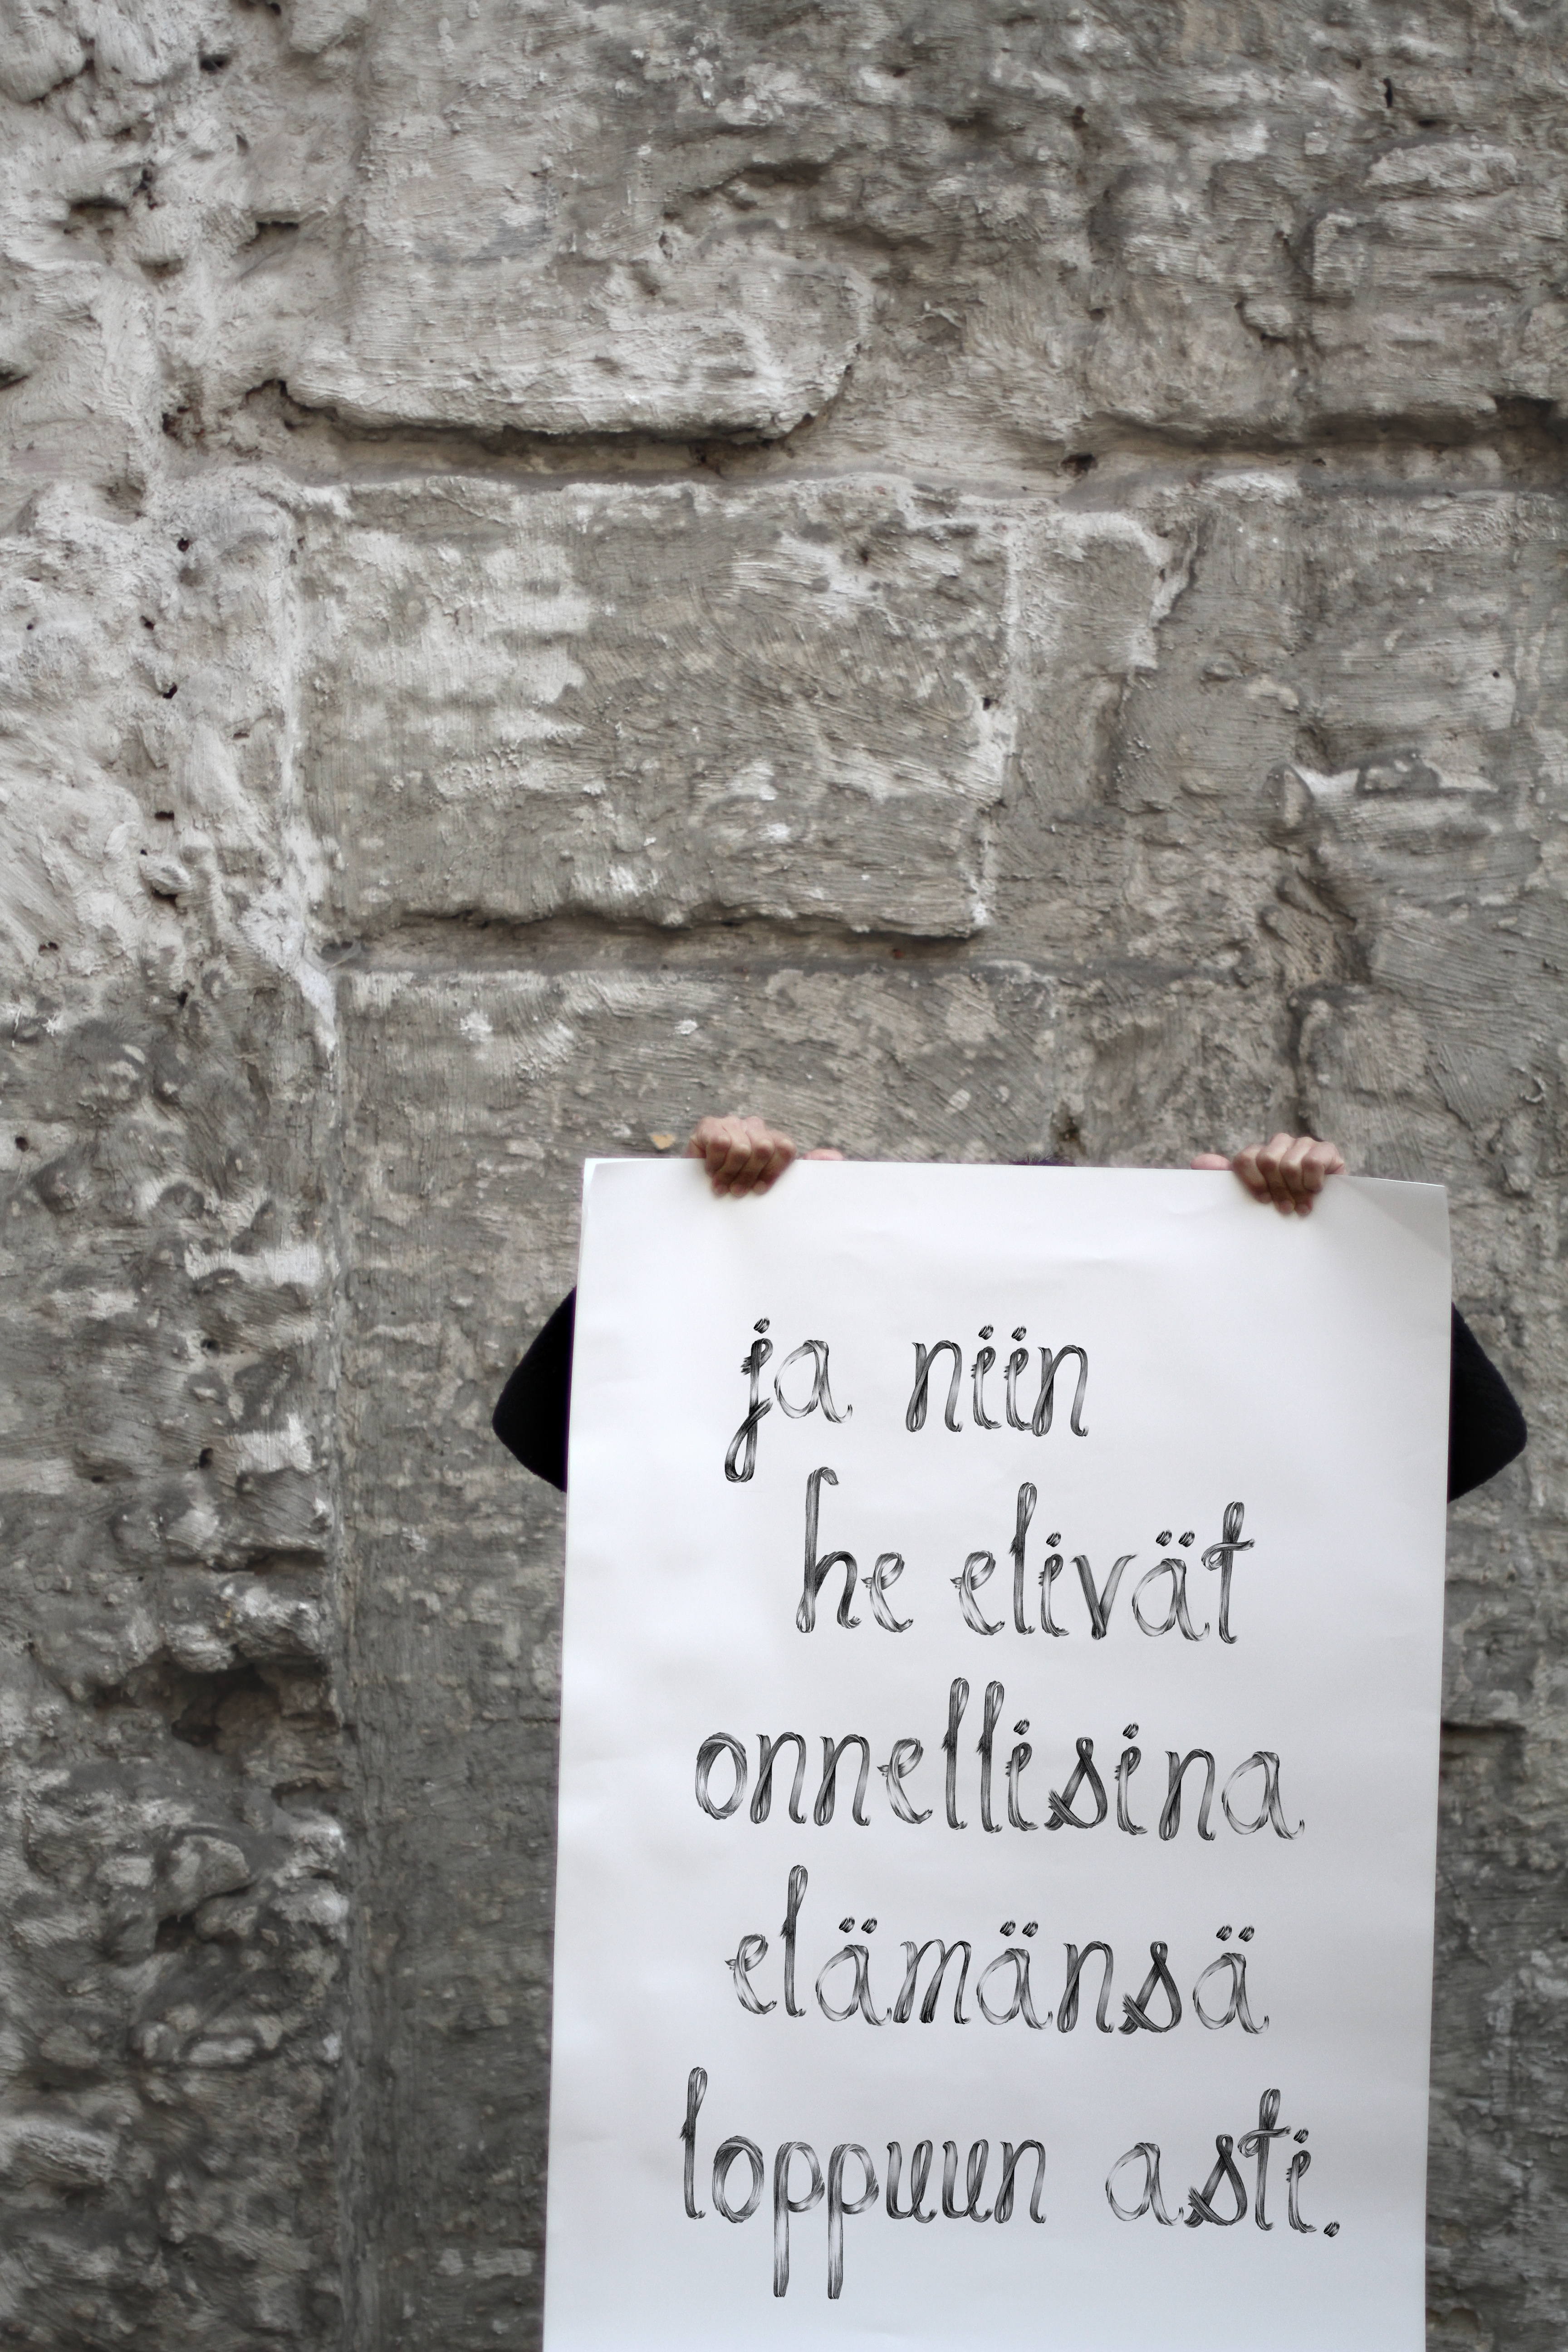 ja niin
he elivät
onnellisina
elämänsä
loppuun asti.